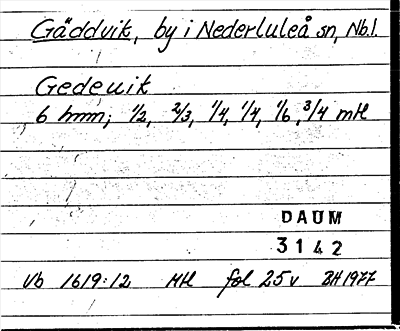 Gäddvik, by i Nederluleå sn, Nb.l.
Gedeuik
6 hmn; 1/2, 2/3, 1/4, 1/4, 1/6, 3/4 mtl
DAUM
3142
Vb 1619:12 Mtl fol 25v BH 1977